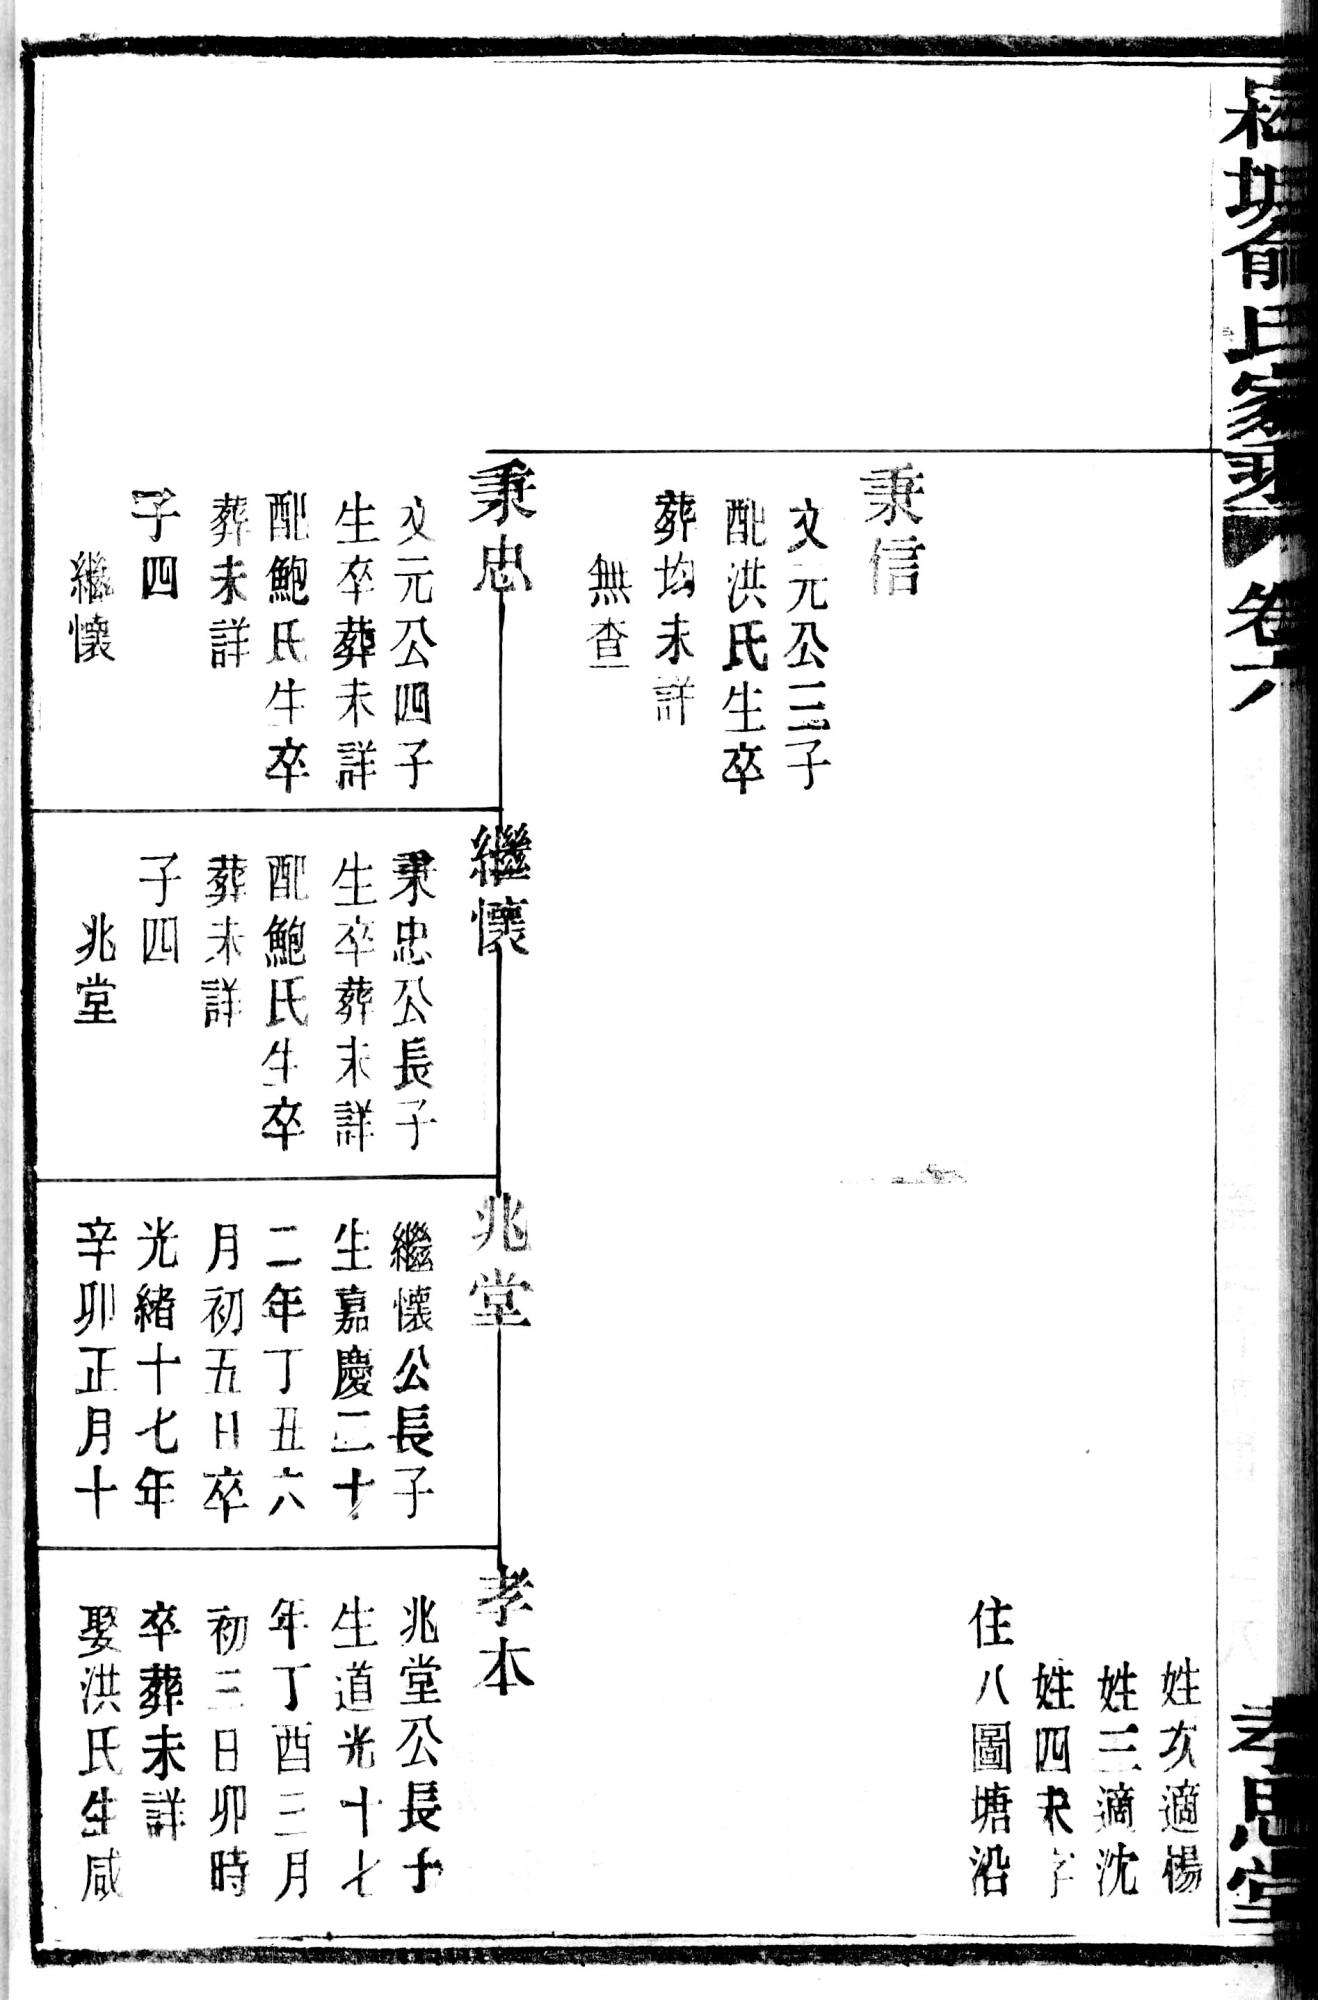 塘俞氏家乘
卷六
孝思堂
姓次適楊
姓三適沈
姓四未字
住八圖塘沿
秉信
文元公三子
配洪氏生卒
葬均未詳
無查
秉忠
文元公四子
生卒葬未詳
配鮑氏生卒
葬未詳
子四
繼懷
繼懷
秉忠公長子
生卒葬未詳
配鮑氏生卒
葬未詳
子四
兆堂
兆堂
繼懷公長子
生嘉慶二十
二年丁丑六
月初五日卒
光緒十七年
辛卯正月十
孝本
兆堂公長子
生道光十七
年丁酉三月
初三日卯時
卒葬未詳
娶洪氏生咸